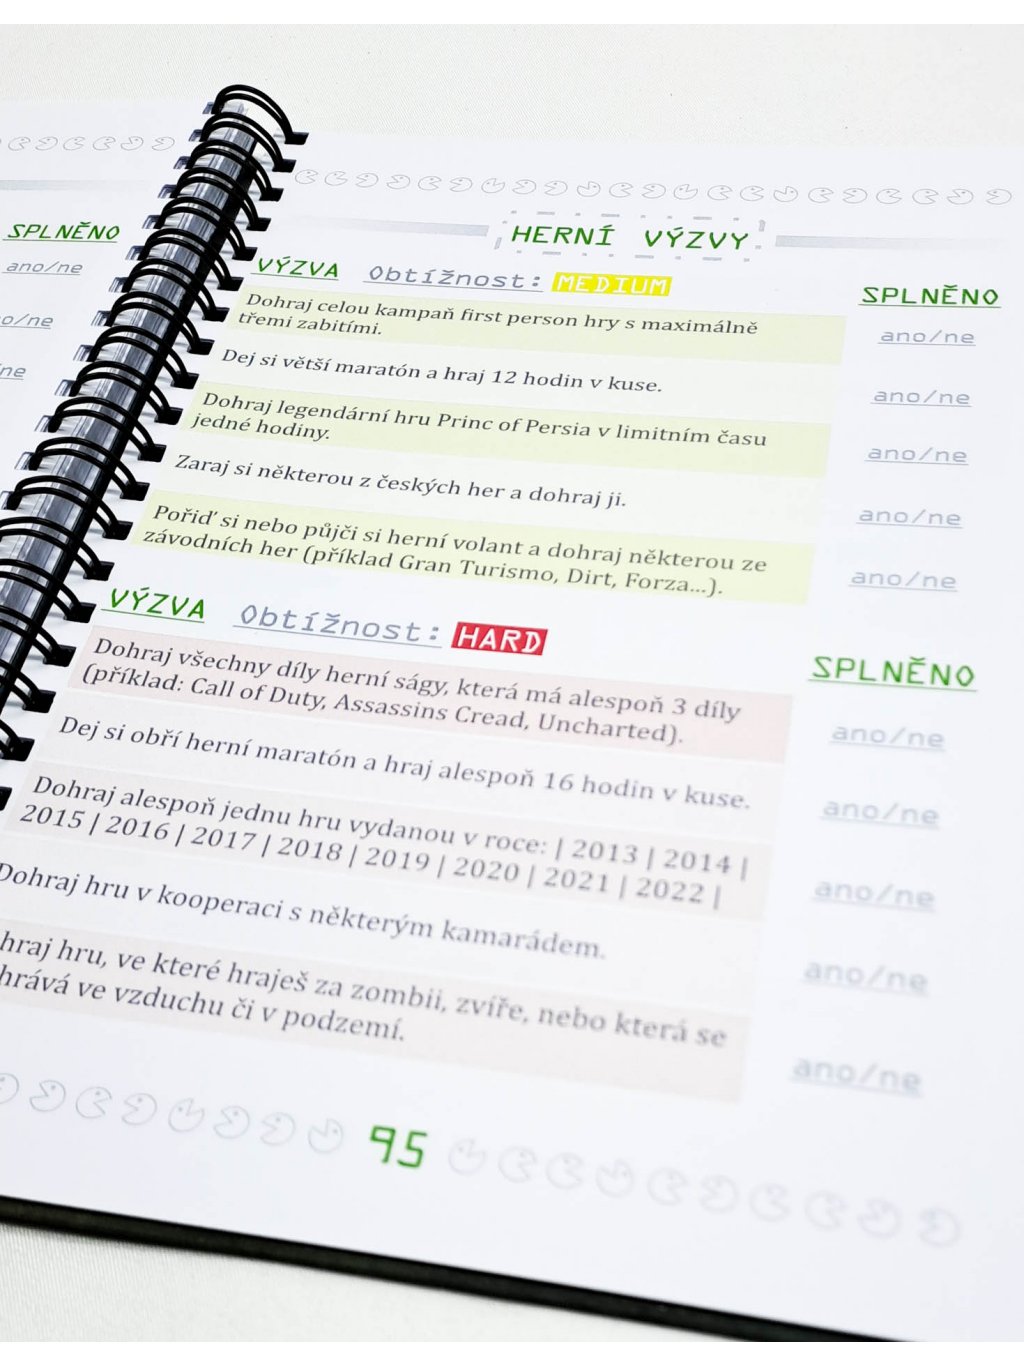 SPLNĚNO
ano/ne
HERNÍ VÝZVY
VÝZVA Obtížnost: MEDIUM
SPLNĚNO
Dohraj celou kampaň first person hry s maximálně
třemi zabitími.
ano/ne
Dej si větší maratón a hraj 12 hodin v kuse.
ano/ne
Dohraj legendární hru Princ of Persia v limitním času
jedné hodiny.
ano/ne
Zaraj si některou z českých her a dohraj ji.
ano/ne
Pořiď si nebo půjči si herní volant a dohraj některou ze
závodních her (příklad Gran Turismo, Dirt, Forza...).
ano/ne
VÝZVA Obtížnost: HARD
SPLNĚNO
Dohraj všechny díly herní ságy, která má alespoň 3 díly
(příklad: Call of Duty, Assassins Cread, Uncharted).
ano/ne
Dej si obří herní maratón a hraj alespoň 16 hodin v kuse.
ano/ne
Dohraj alespoň jednu hru vydanou v roce: | 2013 | 2014 |
2015 | 2016 | 2017 | 2018 | 2019 | 2020 | 2021 | 2022 |
ano/ne
Dohraj hru v kooperaci s některým kamarádem.
ano/ne
hraj hru, ve které hraješ za zombii, zvíře, nebo která se
hrává ve vzduchu či v podzemí.
ano/ne
95